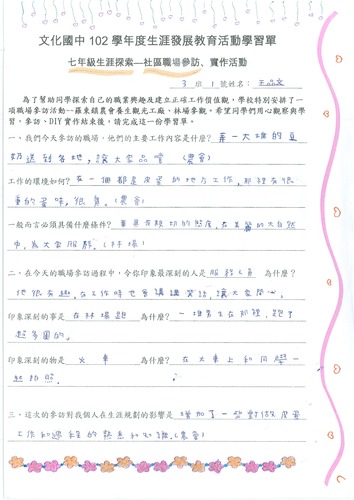 文化國中 102 學年度生涯發展教育活動學習單
七年級生涯探索—社區職場參訪、實作活動
3 班 1 號姓名:王
為了幫助同學探索自己的職業興趣及建立正確工作價值觀,學校特別安排了一
項職場參訪活動—羅東鎮農會養生觀光工廠、林場參觀。希望同學們用心觀察與學
習,參訪、DIY 實作結束後,請完成這一份學習單。
一、我們今天參訪的職場,他們的主要工作內容是什麼?弄一大堆的豆
奶送到各地,讓大家品嚐 (農會)
工作的環境如何?在一個都是皮蛋的地方工作,那裡有很
重的蛋味,很臭。(農會)
一般而言必須具備什麼條件?要具有親切的態度,在美麗的大自然
中,為大家服務。(林場)
二、在今天的職場參訪過程中,令你印象最深刻的人是 服務人員 為什麼?
他很有趣,在工作時也會講講笑話,讓大家開心。
印象深刻的事是 在林場跑 為什麼? 一堆男生在那裡,跑了
超多圈的。
印象深刻的物是 火車 為什麼? 在火車上和同學一
起拍照。
三、這次的參訪對我個人在生涯規劃的影響是 增加了一些對做皮蛋
工作和過程的熱忱和知識。(農會)